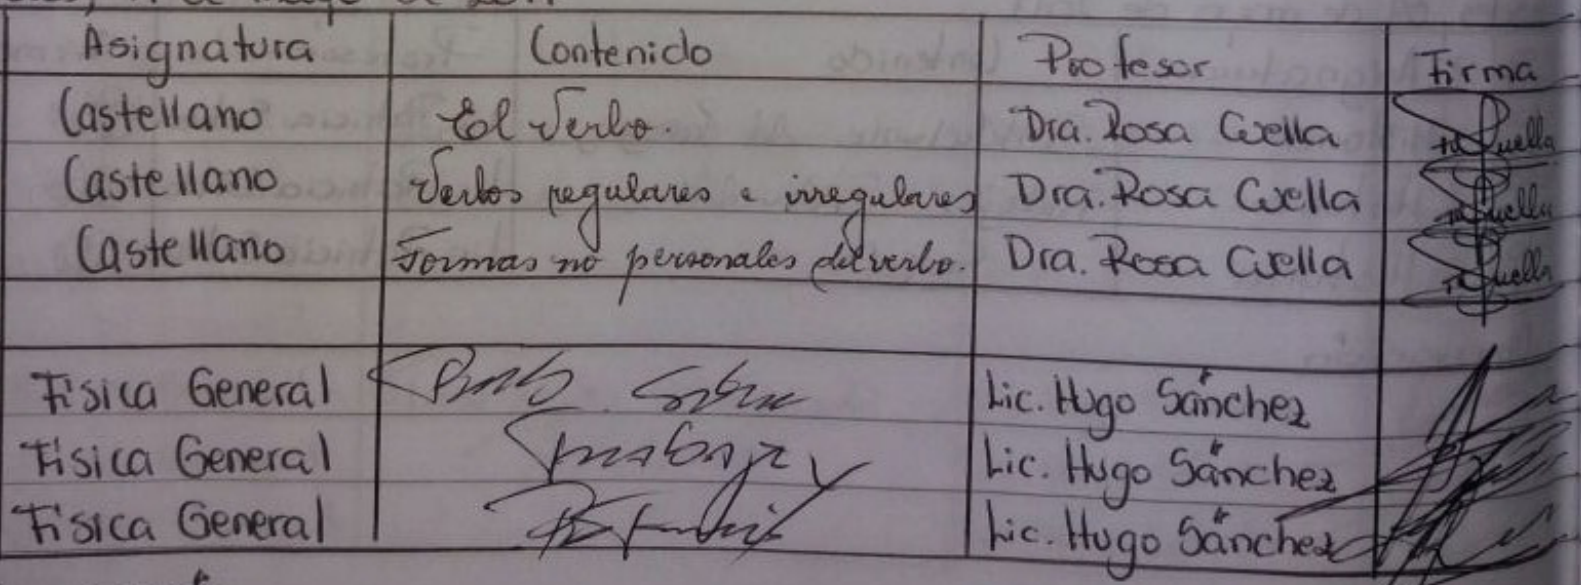 Asignatura Contenido Profesor Firma
Castellano El Verbo. Dra. Rosa Cuella
Castellano Verbos regulares e irregulares Dra. Rosa Cuella
Castellano Formas no personales del verbo. Dra. Rosa Cuella
Física General Lic. Hugo Sánchez
Física General Lic. Hugo Sánchez
Física General Lic. Hugo Sánchez